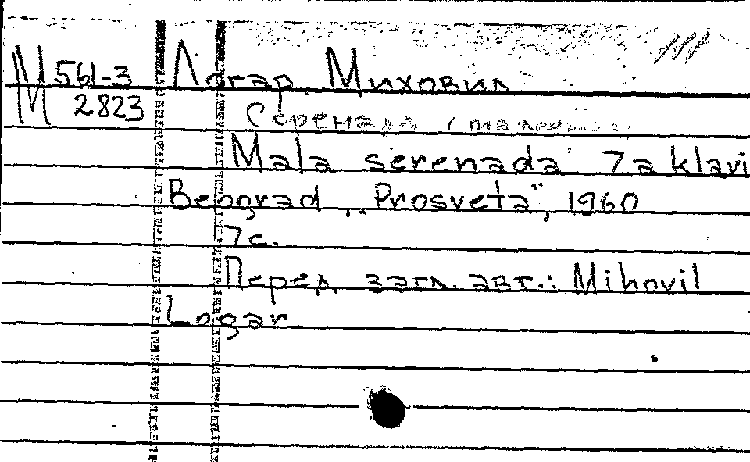 М 561-3 Логар, Миховил
М 2823 Серенада / маленькая
Mala serenada za klavi
Beograd „Prosveta", 1960
7с.
Перед загл. авт.: Mihovil
Logar